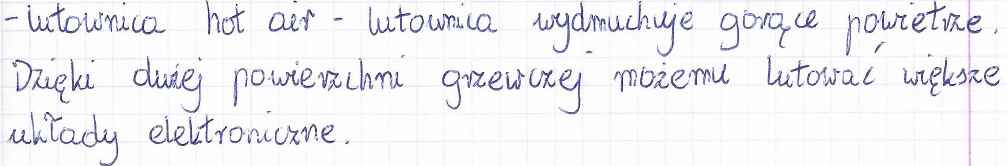 - lutownica hot air - lutownica wydmuchuje gorące powietrze.
Dzięki dużej powierzchni grzewczej możemu lutować większe
układy elektroniczne.